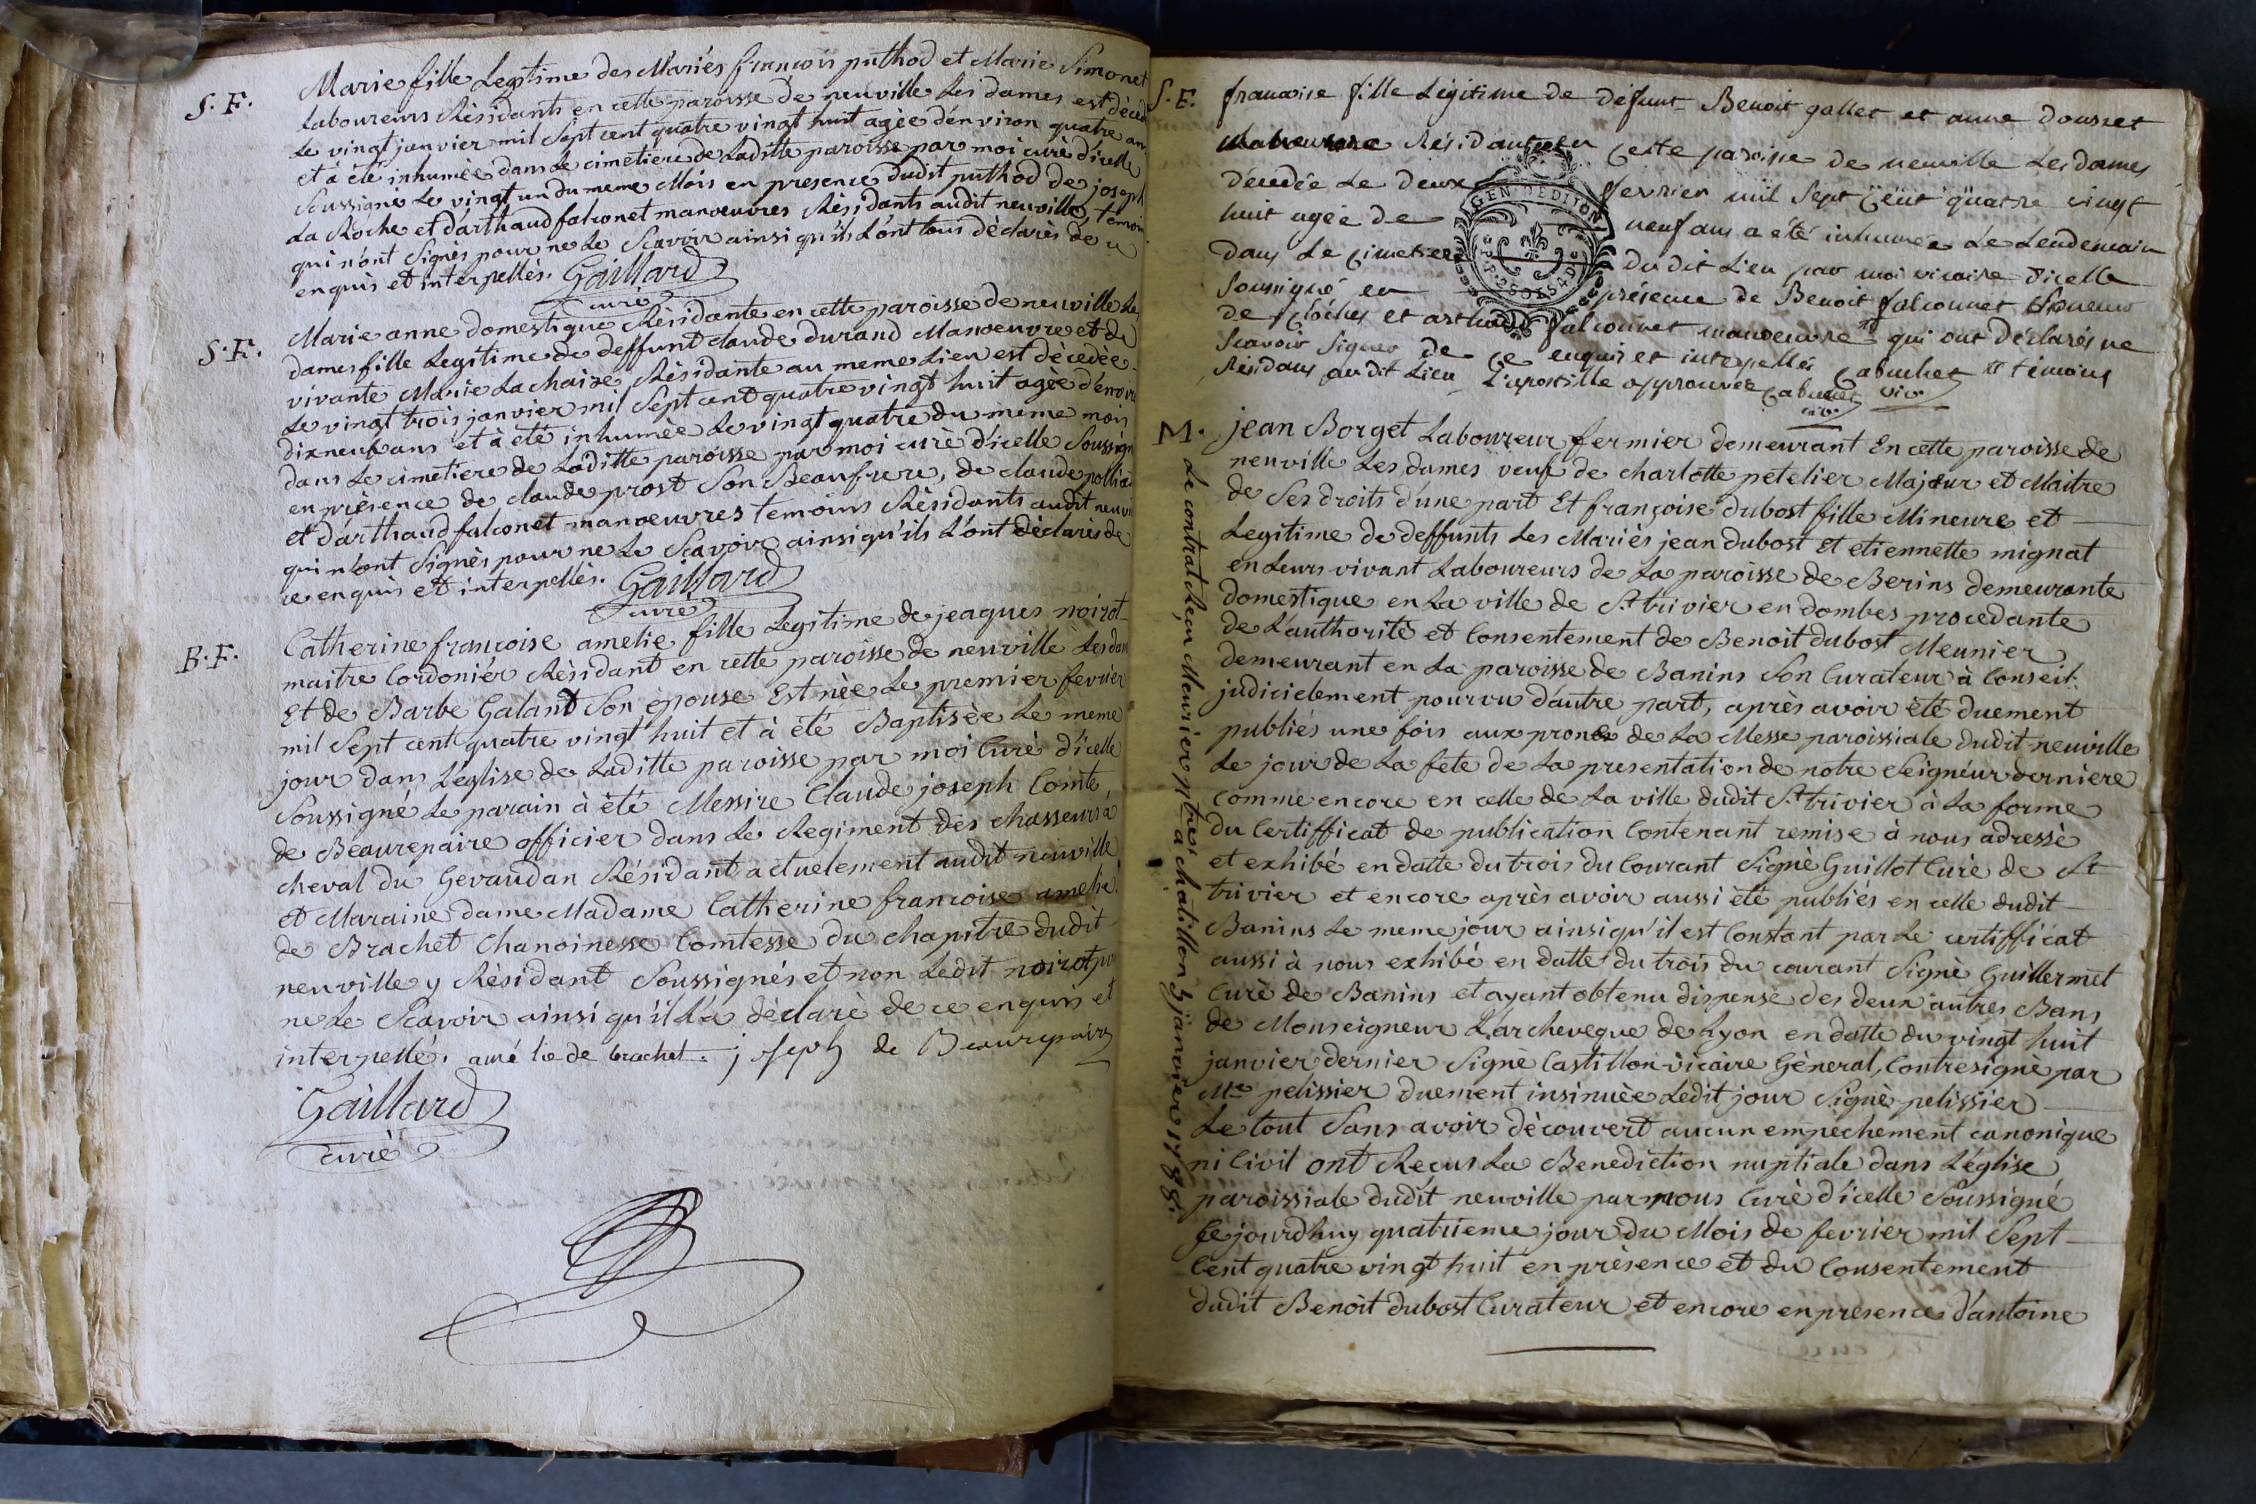 S. F.
Marie fille Legitime des Mariés françois puthod et Marie Simonet
Laboureurs Résidants en cette paroisse de neuville Les dames est décéd
Le vingt janvier mil Sept cent quatre vingt huit agée d'environ quatre an
et à été inhumée dans Le cimetiere de Laditte paroisse par moi curé d'icelle
Soussigné Le vingt un du meme Mois en presence dudit puthod de joseph
La Roche et d'arthaud falconet manoeuvres Résidants audit neuville, temoin
qui n'ont Signés pour ne Le Scavoir ainsi qu'ils L'ont tous déclarés de c
enquis et interpellés. Gaillard
curé
S. F.
Marie anne domestique Résidante en cette paroisse de neuville Le
dames fille Legitime de deffunt claude durand Manoeuvre et de
vivante Marie La chaize Résidante au meme Lieu est décedée
Le vingt trois janvier mil Sept cent quatre vingt huit agée d'enviro
dixneuf ans et à été inhumée Le vingt quatre du meme mois
dans Le cimetiere de Laditte paroisse par moi curé d'icelle Soussign
en présence de claude prost Son Beaufrere, de claude pollia
et d'arthaud falconet manoeuvres temoins Résidants audit neuvi
qui n'ont Signés pour ne Le Scavoir ainsi qu'ils L'ont déclarés de
ce enquis et interpellés. Gaillard
curé
B. F.
Catherine françoise amelie fille Legitime de jeaques noirot
maitre Cordonier Résidant en cette paroisse de neuville Les dam
Et de Barbe Galand Son épouse Est née Le premier fevrier
mil Sept cent quatre vingt huit et à été Baptisée Le meme
jour dans L'eglise de Laditte paroisse par moi Curé d'icelle
Soussigné Le parain à été Messire Claude joseph Comte
de Beaurepaire officier dans Le Regiment des chasseurs à
cheval du Gevaudan Résidant actuelement audit neuville
et Maraine dame Madame Catherine françoise amelie
de Brachet Chanoinesse Comtesse du Chapitre dudit
neuville y Résidant Soussignés et non Ledit noirot po
ne Le Scavoir ainsi qu'il L'a déclaré de ce enquis et
interpellé. amélie de brachet. joseph de Beaurepaire
Gaillard
curé
S. F.
francoise fille Légitime de défunt Benoit gallet et anne Dousset
Résidant en cette paroisse de neuville Les dames
décédée Le deux fevrier mil Sept Cent quatre vingt
huit agée de neuf ans a été inhumée Le Lendemain
dans Le Cimetiere du dit Lieu par moi vicaire d'icelle
Soussigné en présence de Benoit falconnet Soneur
de Cloches et arthaud falconnet manoeuvre qui ont déclarés ne
Scavoir Signer de ce enquis et interpellés Cabuchet temoins
Residans audit Lieu L'apostille approuvée Cabuchet vic.
vic.
GEN. D. DIJON
M.
jean Borget Laboureur fermier demeurant En cette paroisse de
neuville Les dames veuf de charlotte petelier Majeur et Maitre
de Ses droits d'une part Et françoise dubost fille Mineure et
Legitime de deffunts Les Mariés jean dubost Et etiennette mignat
en Leurs vivant Laboureurs de La paroisse de Berins demeurante
domestique en La ville de St. trivier en dombes procedante
de L'authorité et Consentement de Benoit dubost Meunier
demeurant en La paroisse de Banins Son Curateur à Conseil
judicielement pourvu d'autre part, après avoir été duement
publiés une fois aux prones de La Messe paroissiale dudit neuville
Le jour de La fete de La presentation de notre Seigneur derniere
comme encore en celle de La ville dudit St. trivier à La forme
du Certifficat de publication Contenant remise à nous adressé
et exhibé en datte du trois du Courant Signé Guillot Curé de St
trivier et encore après avoir aussi été publiés en celle dudit
Banins Le meme jour ainsi qu'il est Constant par Le certifficat
aussi à nous exhibé en datte du trois du courant Signé Guillermet
Curé de Banins et ayant obtenu dispense des deux autres Bans
de Monseigneur L'archeveque de Lyon en datte du vingt huit
janvier dernier Signé Castillon vicaire Géneral, Contresigné par
Me pelissier duement insinuée Ledit jour Signé pelissier
Le tout Sans avoir découvert aucun empechement canonique
ni Civil ont Reçus La Benediction nuptiale dans L'église
paroissiale dudit neuville par nous Curé d'icelle Soussigné
Ce jourdhuy quatrieme jour du Mois de fevrier mil Sept
Cent quatre vingt huit en présence et du Consentement
dudit Benoit dubost Curateur et encore en presence d'antoine
Le contrat chatillon janvier 1788.